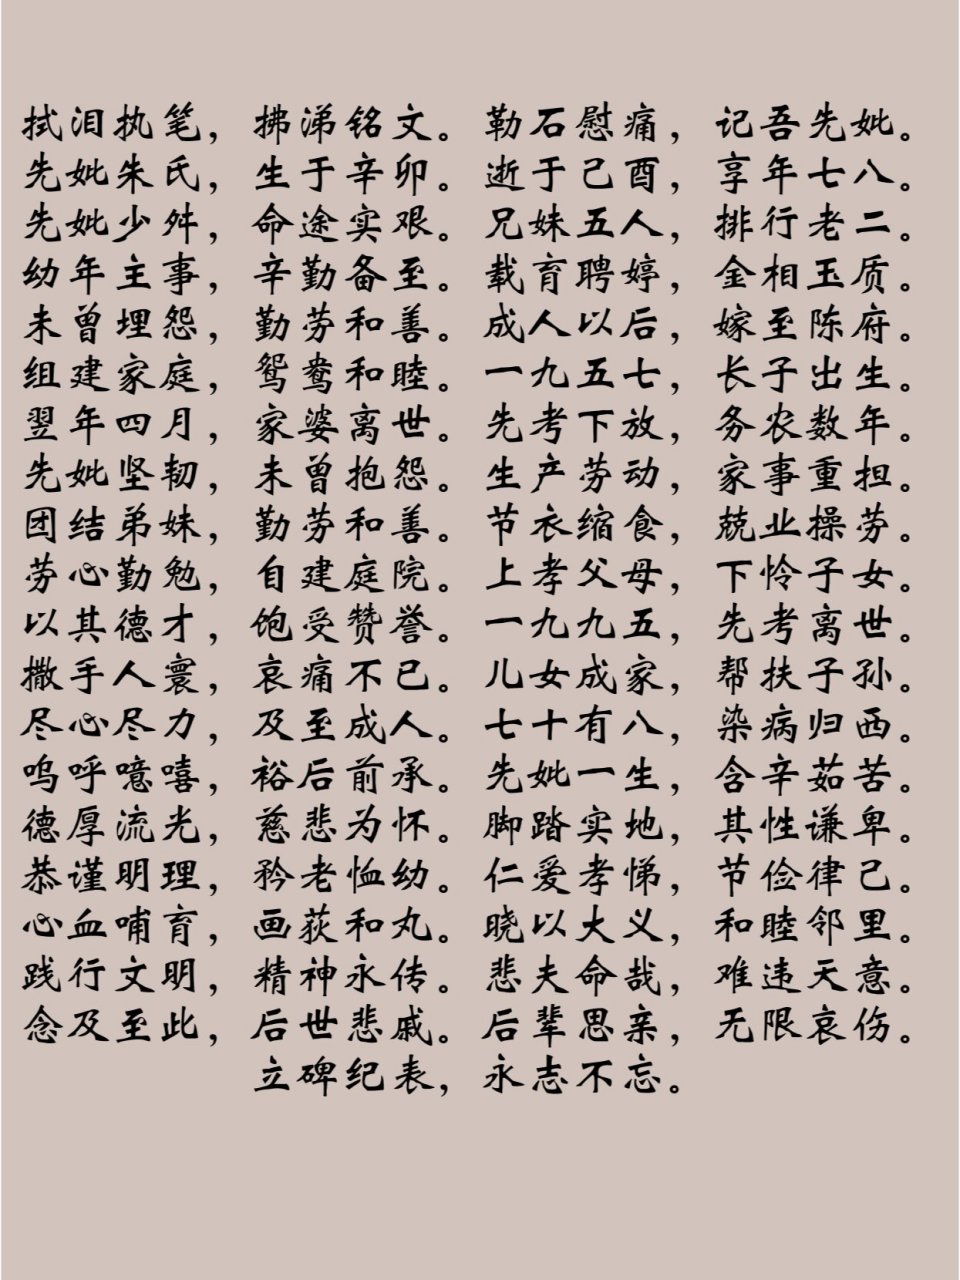 拭泪执笔，拂涕铭文。勒石慰痛，记吾先妣。
先妣朱氏，生于辛卯。逝于己酉，享年七八。
先妣少舛，命途实艰。兄妹五人，排行老二。
幼年主事，辛勤备至。载育聘婷，金相玉质。
未曾埋怨，勤劳和善。成人以后，嫁至陈府。
组建家庭，鸳鸯和睦。一九五七，长子出生。
翌年四月，家婆离世。先考下放，务农数年。
先妣坚韧，未曾抱怨。生产劳动，家事重担。
团结弟妹，勤劳和善。节衣缩食，兢业操劳。
劳心勤勉，自建庭院。上孝父母，下怜子女。
以其德才，饱受赞誉。一九九五，先考离世。
撒手人寰，哀痛不已。儿女成家，帮扶子孙。
尽心尽力，及至成人。七十有八，染病归西。
呜呼噫嘻，裕后前承。先妣一生，含辛茹苦。
德厚流光，慈悲为怀。脚踏实地，其性谦卑。
恭谨明理，矜老恤幼。仁爱孝悌，节俭律己。
心血哺育，画荻和丸。晓以大义，和睦邻里。
践行文明，精神永传。悲夫命哉，难违天意。
念及至此，后世悲戚。后辈思亲，无限哀伤。
立碑纪表，永志不忘。